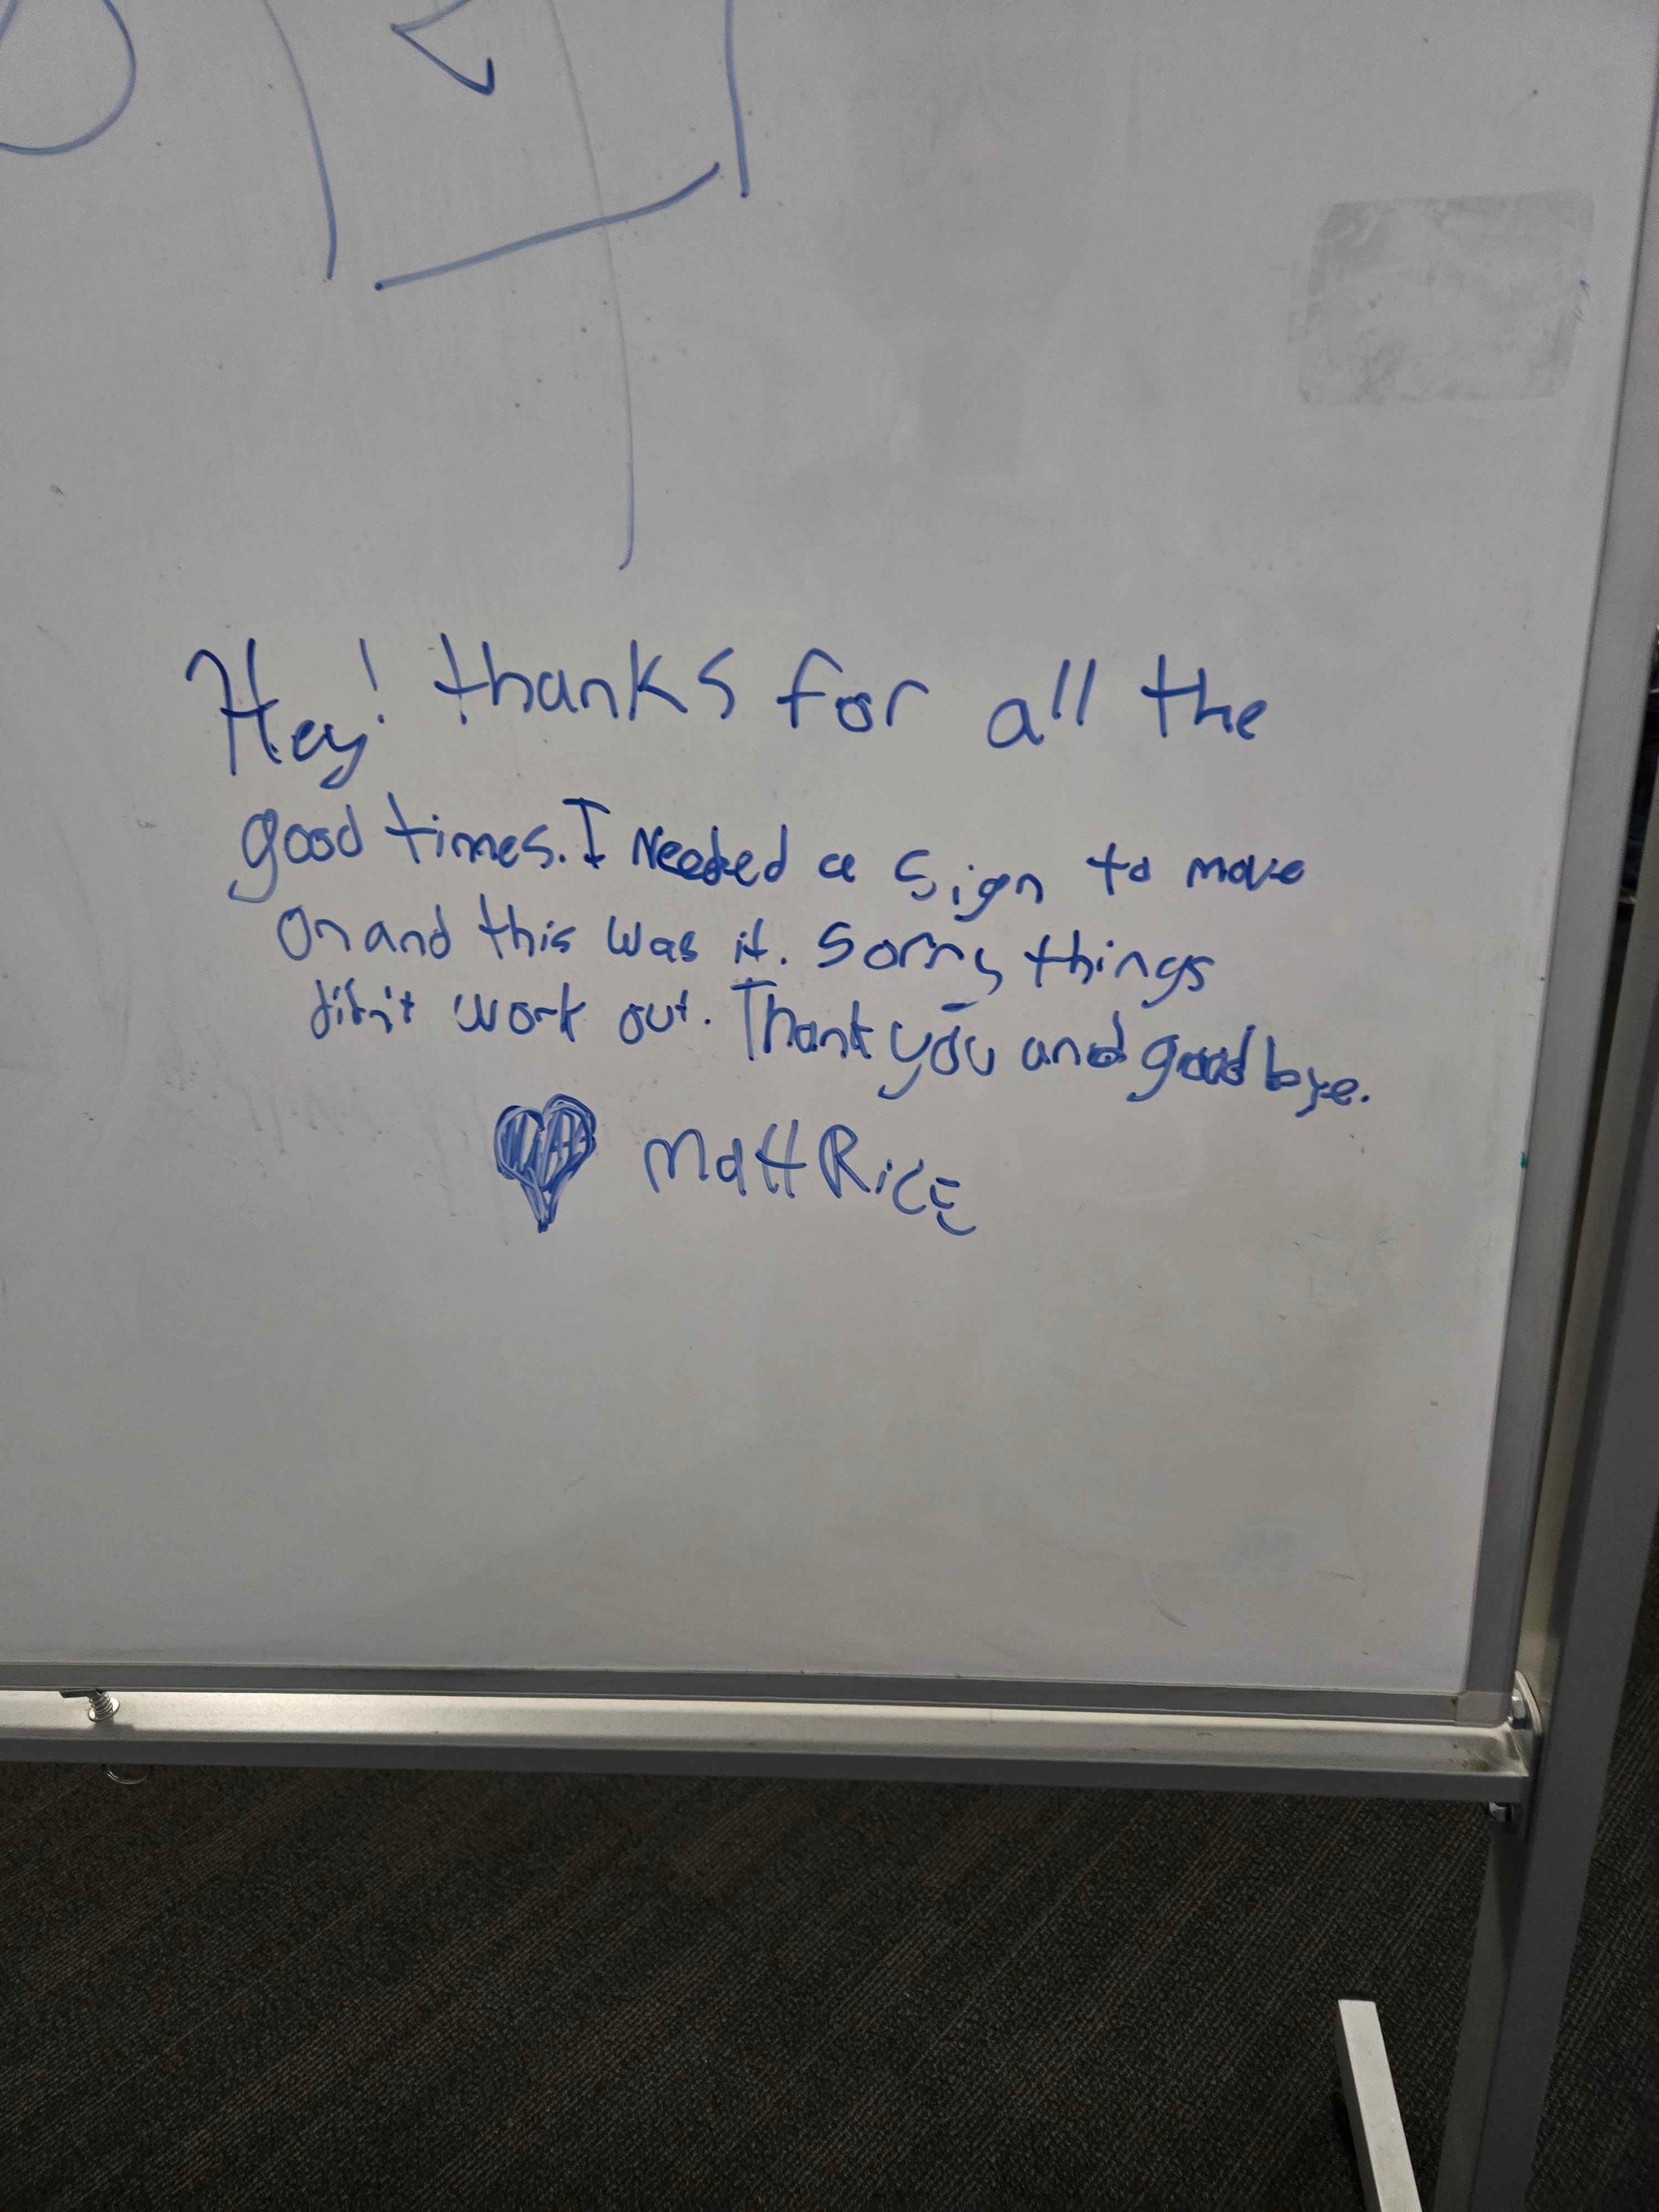 Hey! thanks for all the
good times. I Needed a sign to move
on and this was it. Sorry things
didn't work out. Thank you and good bye.
Matt Rice